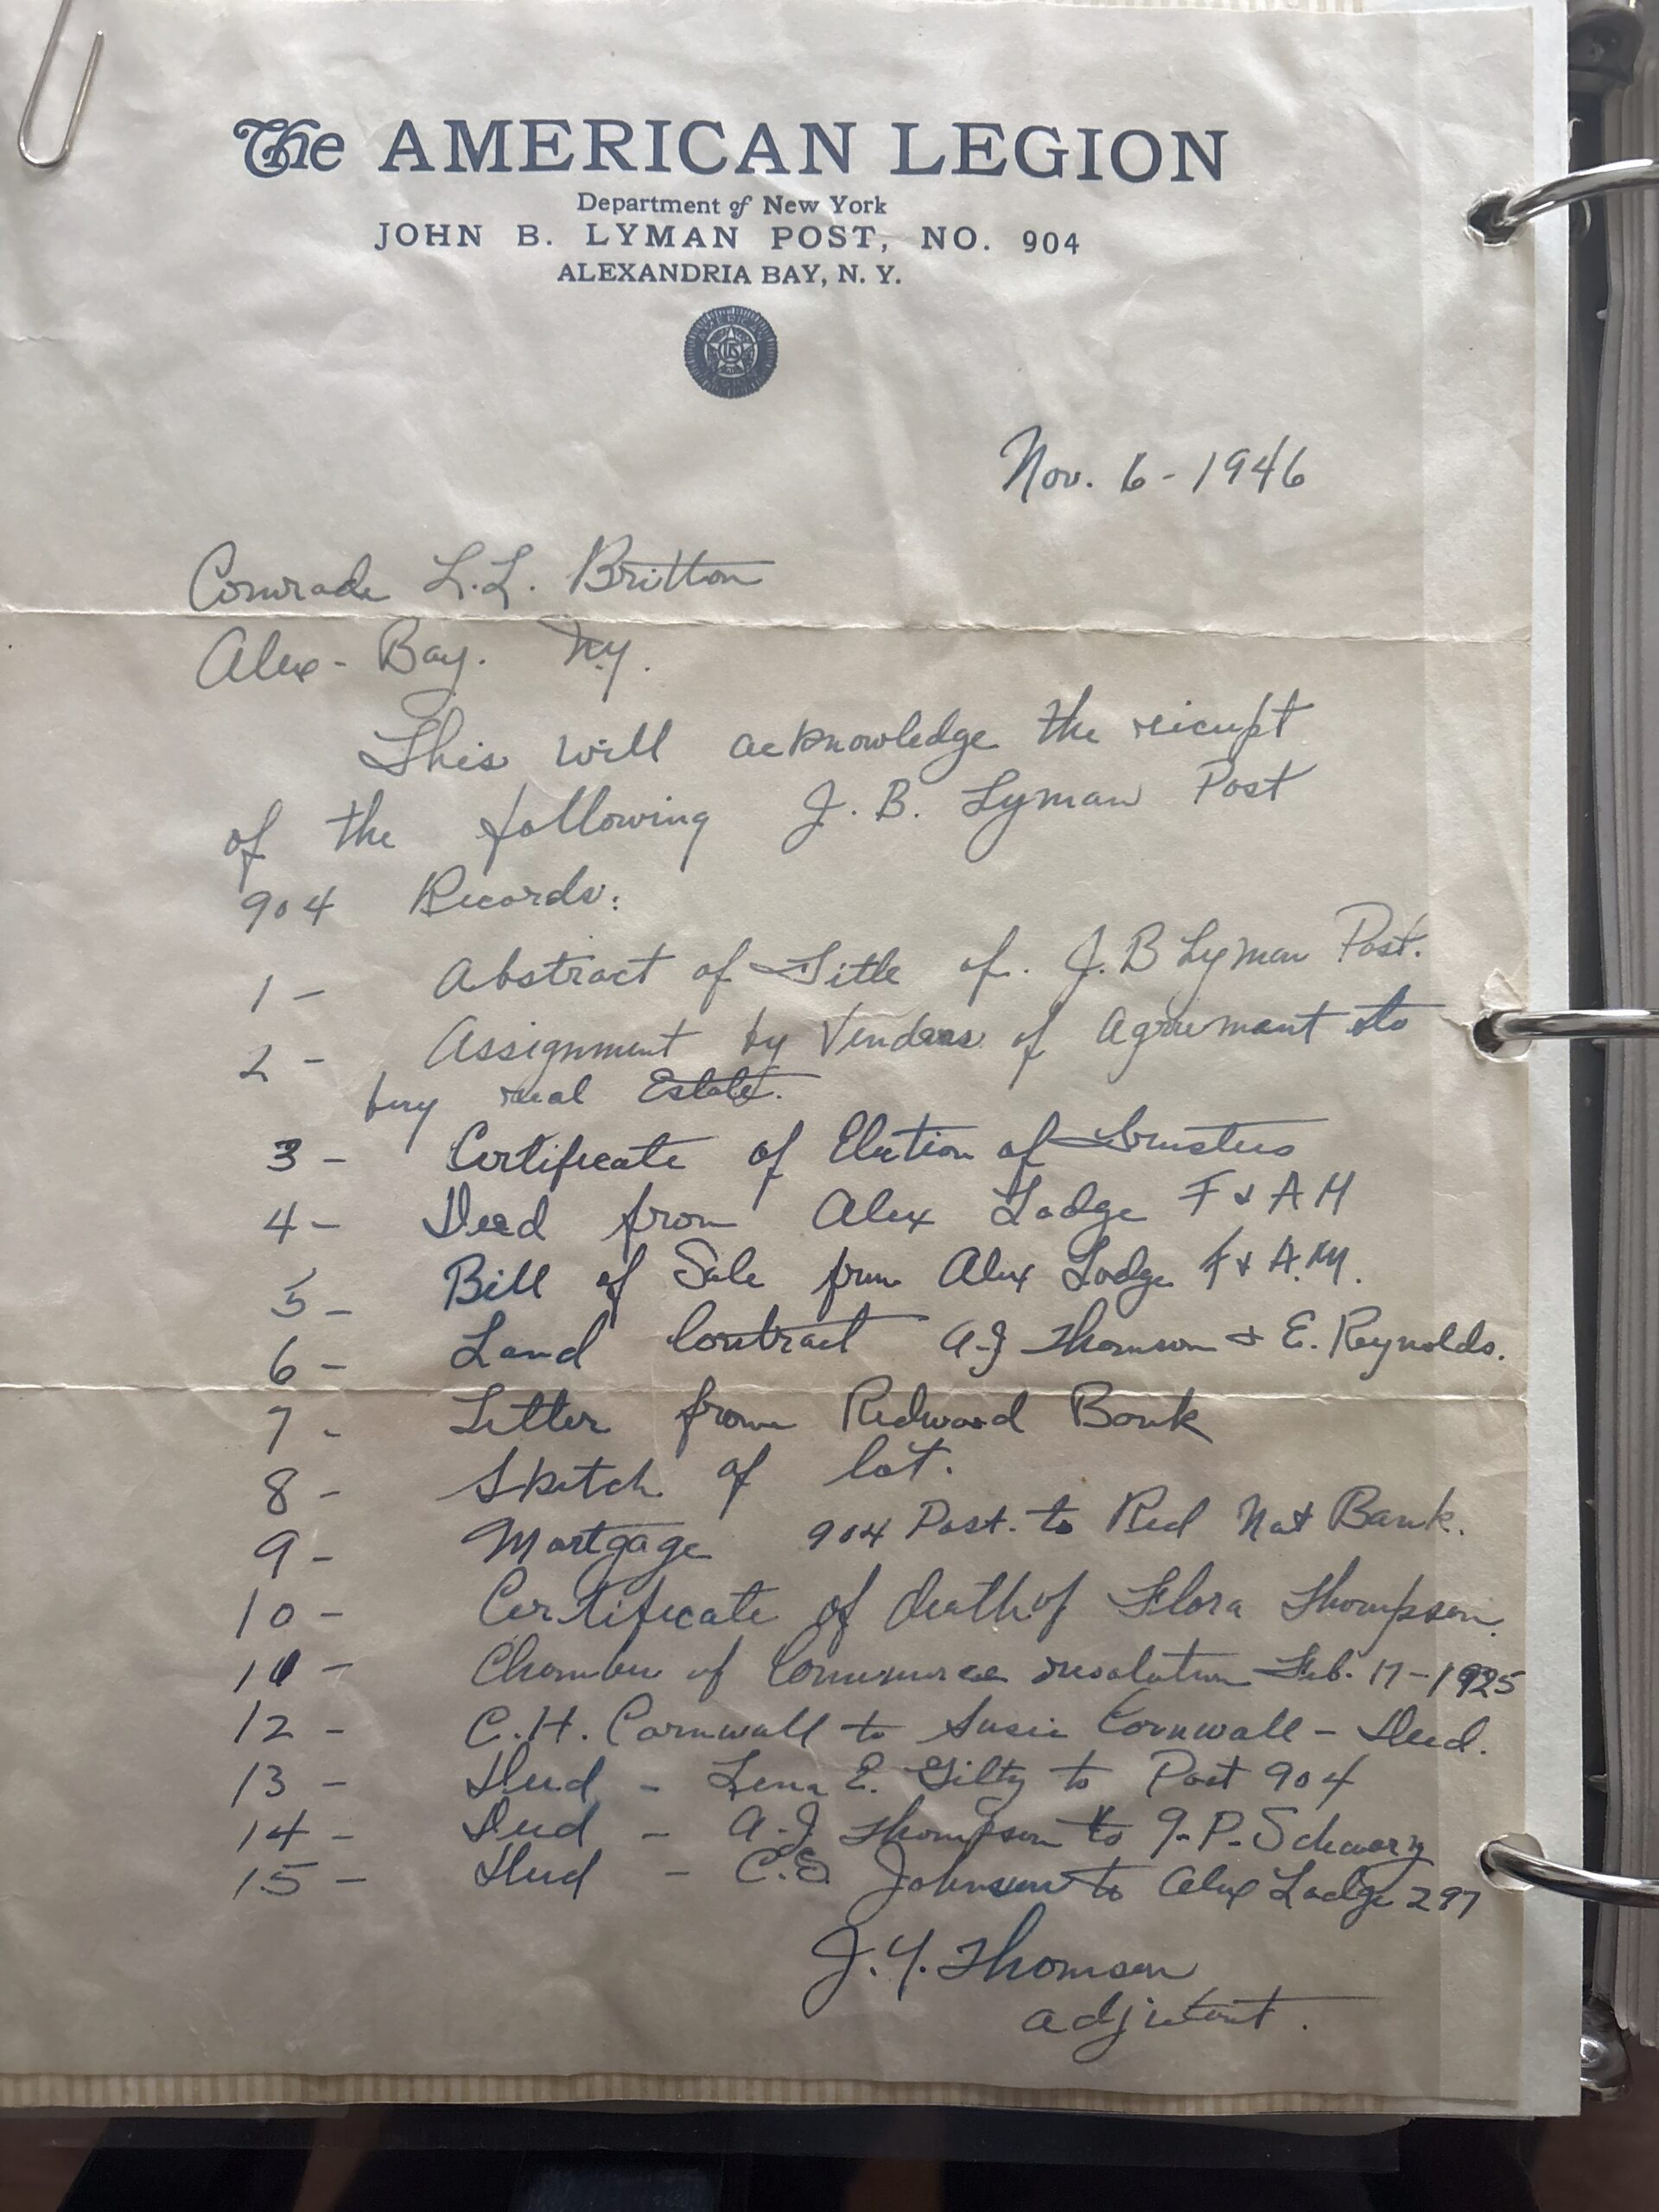 The AMERICAN LEGION
Department of New York
JOHN B. LYMAN POST, NO. 904
ALEXANDRIA BAY, N. Y.
Nov. 6 - 1946
Comrade L.L. Britton
Alex - Bay. N.Y.
This will acknowledge the reicupt
of the following J. B. Lyman Post
904 Records:
1 - Abstract of Title of. J. B Lyman Post.
2 - Assignment by Vendors of Agreement to
buy real Estate.
3 - Certificate of Election of Trustees
4 - Deed from Alex Lodge F & A M
5 - Bill of Sale from Alex Lodge F & A.M.
6 - Land Contract A-J Thomson & E. Reynolds.
7 - Letter from Redwood Bank
8 - Sketch of lot.
9 - Mortgage 904 Post. to Red Nat Bank.
10 - Certificate of death of Flora Thompson.
11 - Chamber of Commerce resolution Feb. 17 - 1925
12 - C.H. Cornwall to Susie Cornwall - Deed.
13 - Deed - Lena E. Gilty to Post 904
14 - Deed - A-J Thompson to J-P- Schwarz
15 - Deed - C.S Johnson to Alex Lodge 297
J. Y. Thomson
adjutant.